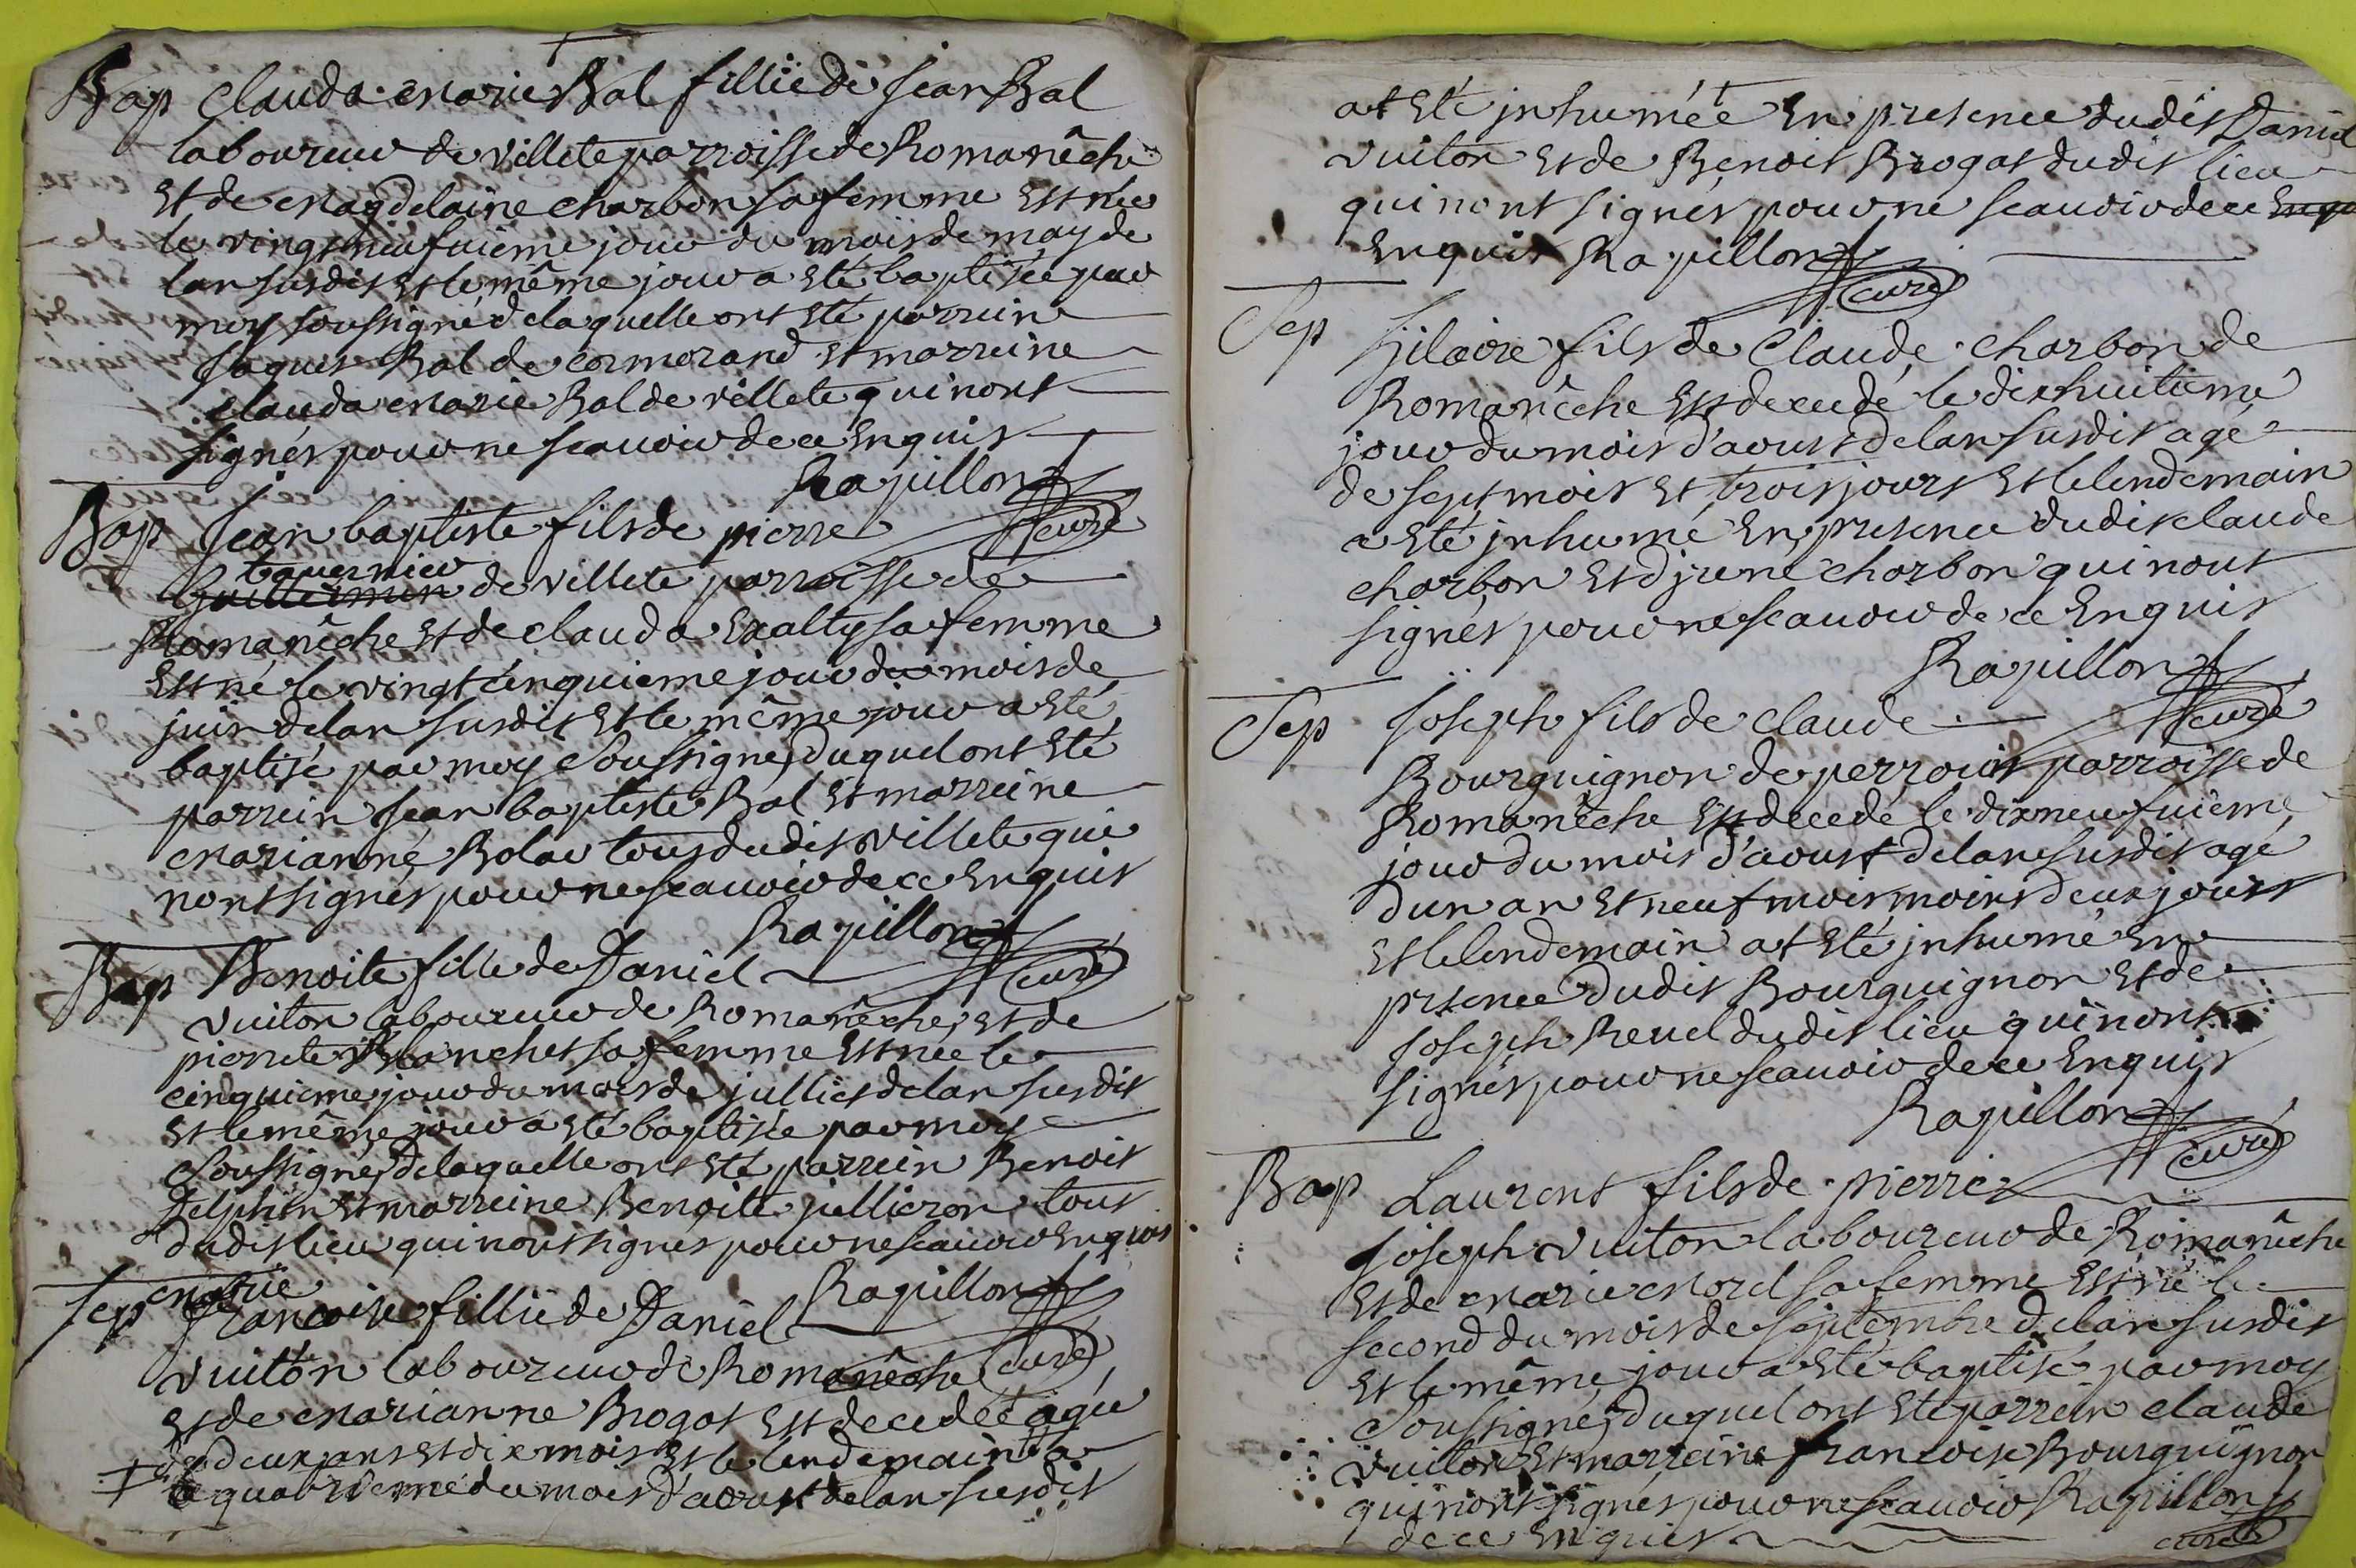 Bap Clauda Marie Bal fillie de Jean Bal
laboureur de villete parroisse de Romanêche
et de Magdelaine Charbon sa femme est née
le vingt neufuieme jour du mois de may de
lan susdit et le même jour a eté baptisée par
moy soussigné delaquelle ont eté parrein
Jaques Bal de cormorand et marreine
Clauda Marie Bal de villete qui nont
signés pour ne scauoir de ce enquis
Rapillon
curé
Bap Jean baptiste fils de pierre
tauernier
Guillermin de villete parroisse de
Romanêche et de clauda Exalty sa femme
est né le vingt cinquieme jour du mois de
juin delan susdit et le même jour a eté
baptisé par moy soussigné, duquel ont eté
parrein Jean baptiste Bal et marreine
Marianne Bolar tous dudit villete qui
nont signés pour ne scauoir de ce enquis
Rapillon
curé
Bap Benoite fille de Daniel
Vuiton laboureur de Romanêche, et de
pierrete Blanchet sa femme est née le
cinquieme jour du mois de julliet delan susdit
et le même jour a eté baptisée par moy
soussigné, delaquelle ont eté parrein Benoit
Delphin et marreine Benoite jullieron tous
dudit lieu qui nont signés pour ne scauoir enquis
Rapillon
curé
Sep
Francoise fillie de Daniel
Vuiton laboureur de Romanêche
et de Marianne Brogat est decedée agée
de deux ans et dix mois et le lendemain a
+ le quatrieme du mois d'aoust delan susdit
at eté inhumée en presence dudit Daniel
Vuiton et de Benoit Brogat dudit lieu
qui nont signés pour ne scauoir de ce enqu
enquis Rapillon
curé
Sep hilaire fils de Claude Charbon de
Romanêche est decedé le dixhuitieme
jour du mois d'aoust delan susdit agé
de sept mois et trois jours et le lendemain
a eté inhumé en presence dudit claude
charbon et d'jrené charbon qui nont
signés pour ne scauoir de ce enquis
Rapillon
curé
Sep Joseph fils de Claude
Bourguignon de perroux parroisse de
Romanêche est decedé le dixneufuieme
jour du mois d'aoust delan susdit agé
dun an et neuf mois moins deux jours
et le lendemain at eté inhumé en
presence dudit Bourguignon et de
Joseph Reuel dudit lieu qui nont
signés pour ne scauoir de ce enquis
Rapillon
curé
Bap Laurent fils de pierre
Joseph Vuiton laboureur de Romanêche
et de Marie Morel sa femme est né le
second du mois de septembre delan susdit
et le même jour a eté baptisé par moy
soussigné, duquel ont eté parrein claude
Vuiton et marreine francoise Bourguignon
qui nont signés pour ne scauoir Rapillon
de ce enquis curé